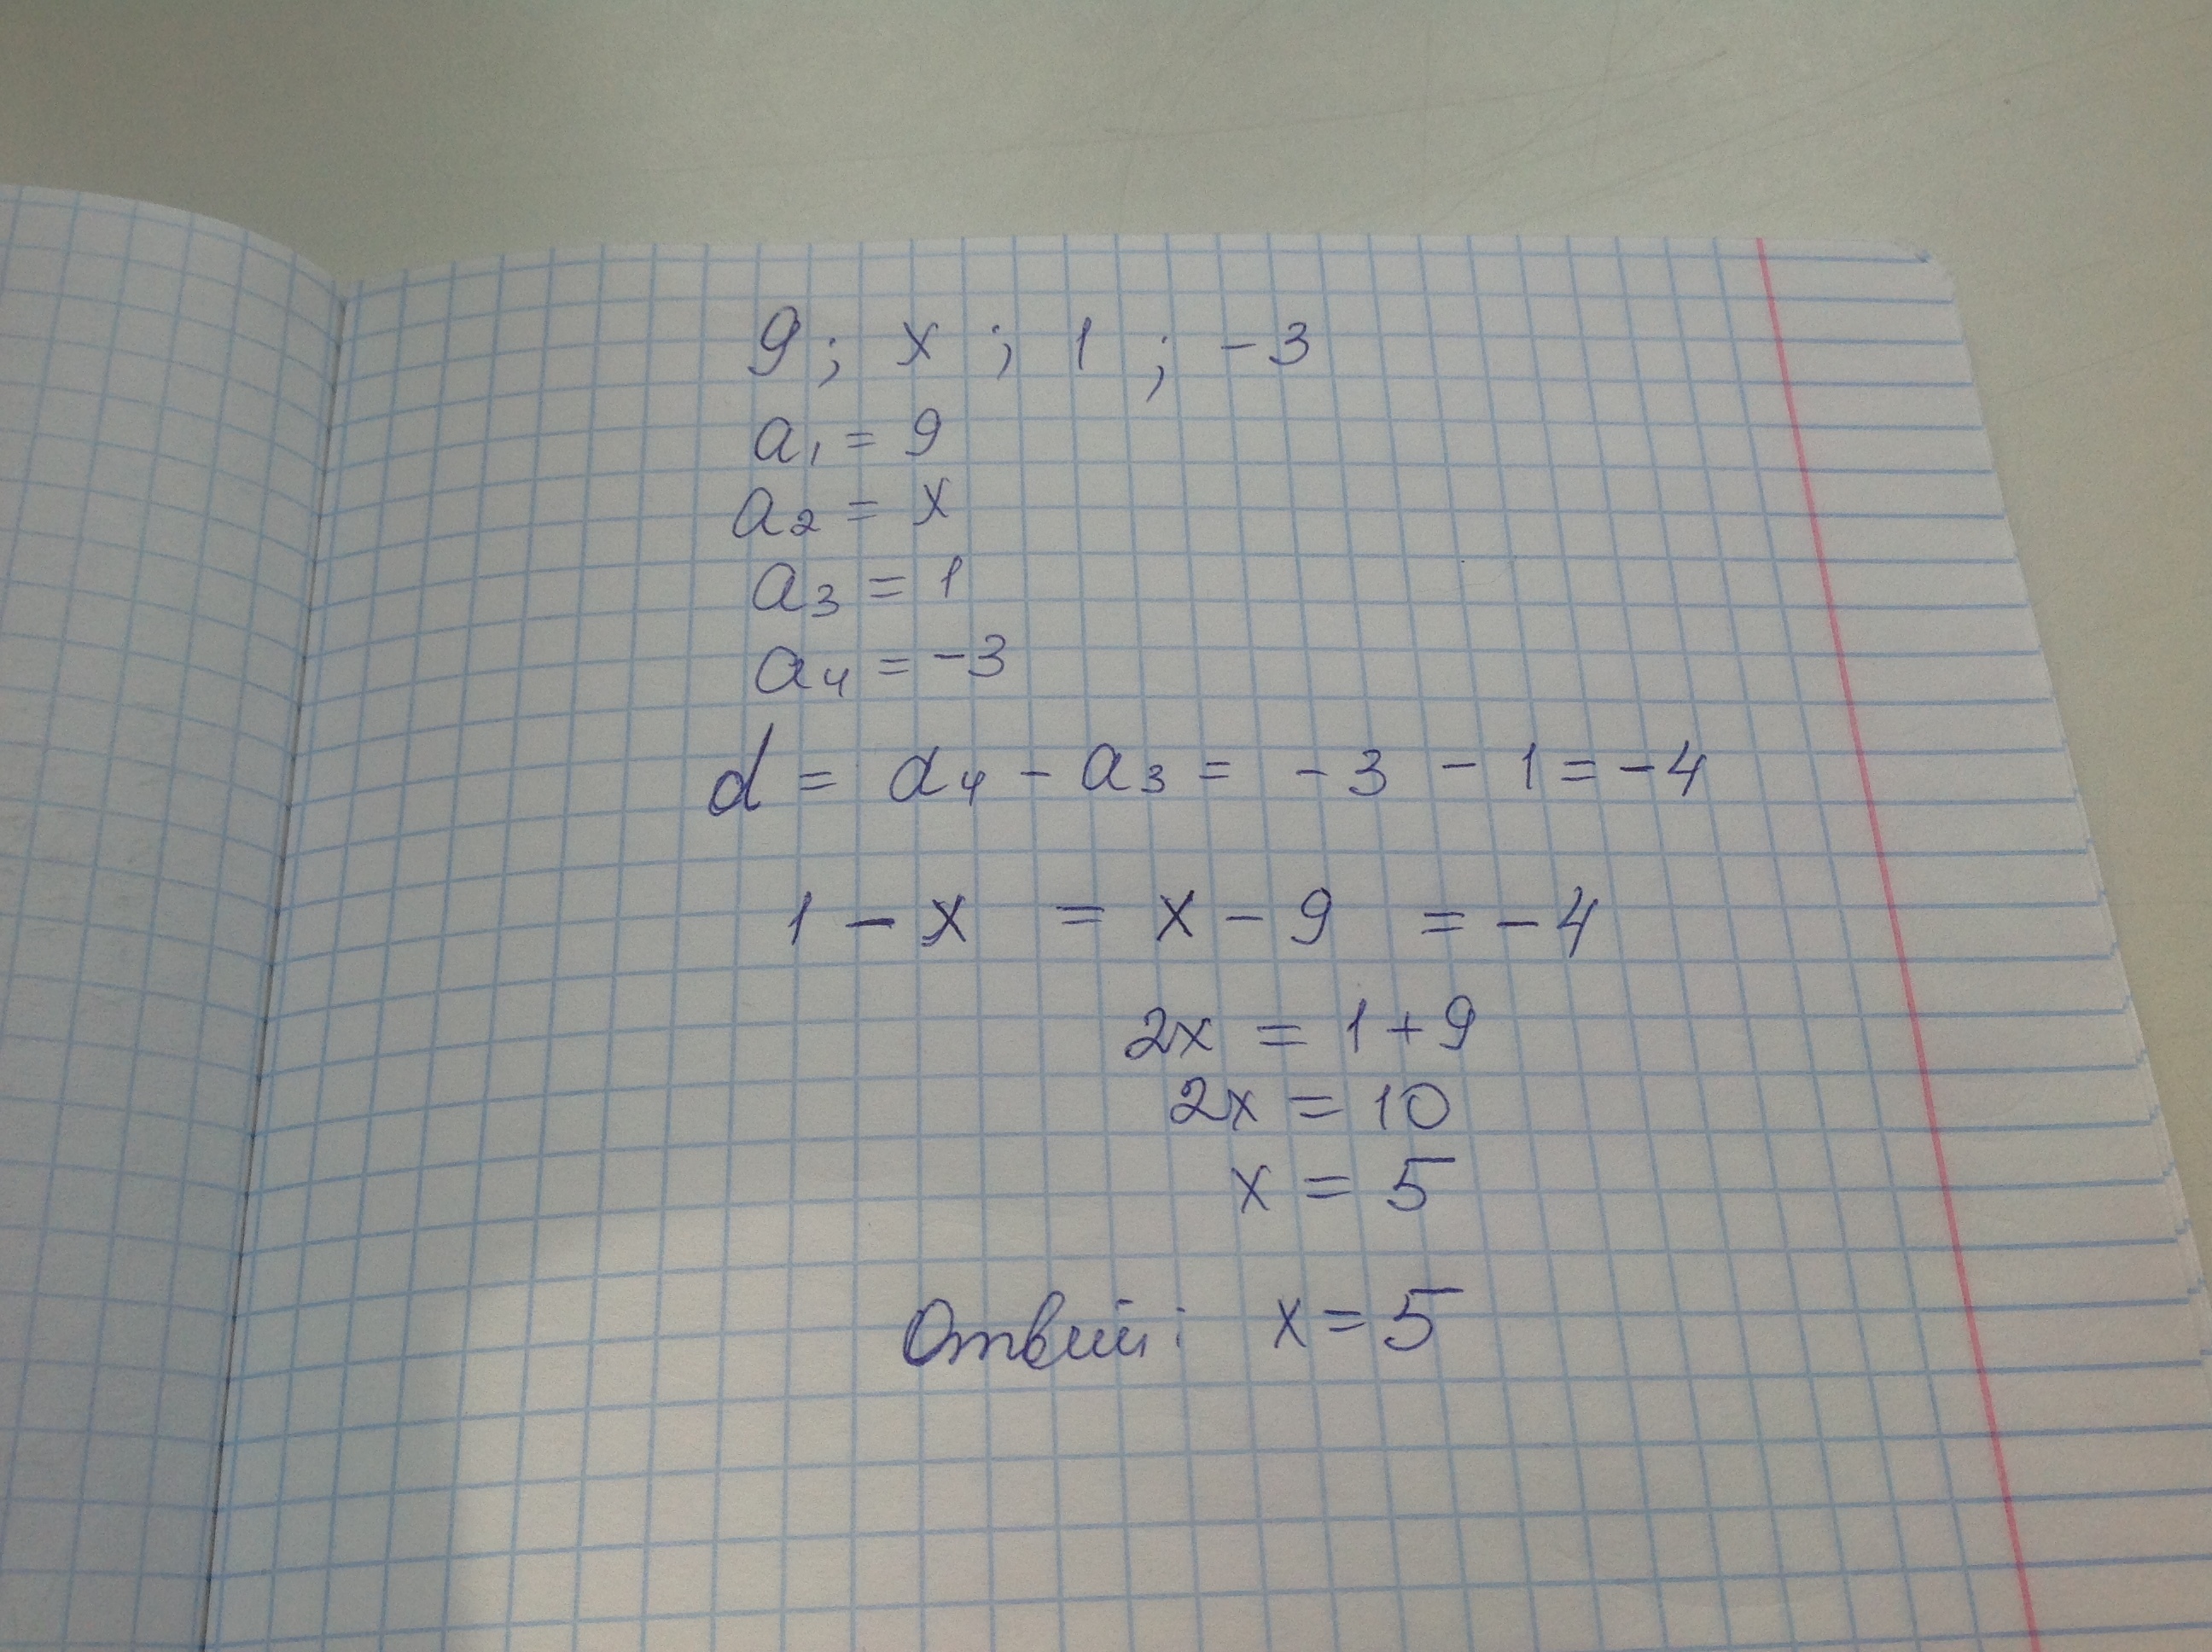 9; x; 1; -3
a₁ = 9
a₂ = x
a₃ = 1
a₄ = -3
d = a₄ - a₃ = -3 - 1 = -4
1 - x = x - 9 = -4
2x = 1 + 9
2x = 10
x = 5
Ответ: x = 5